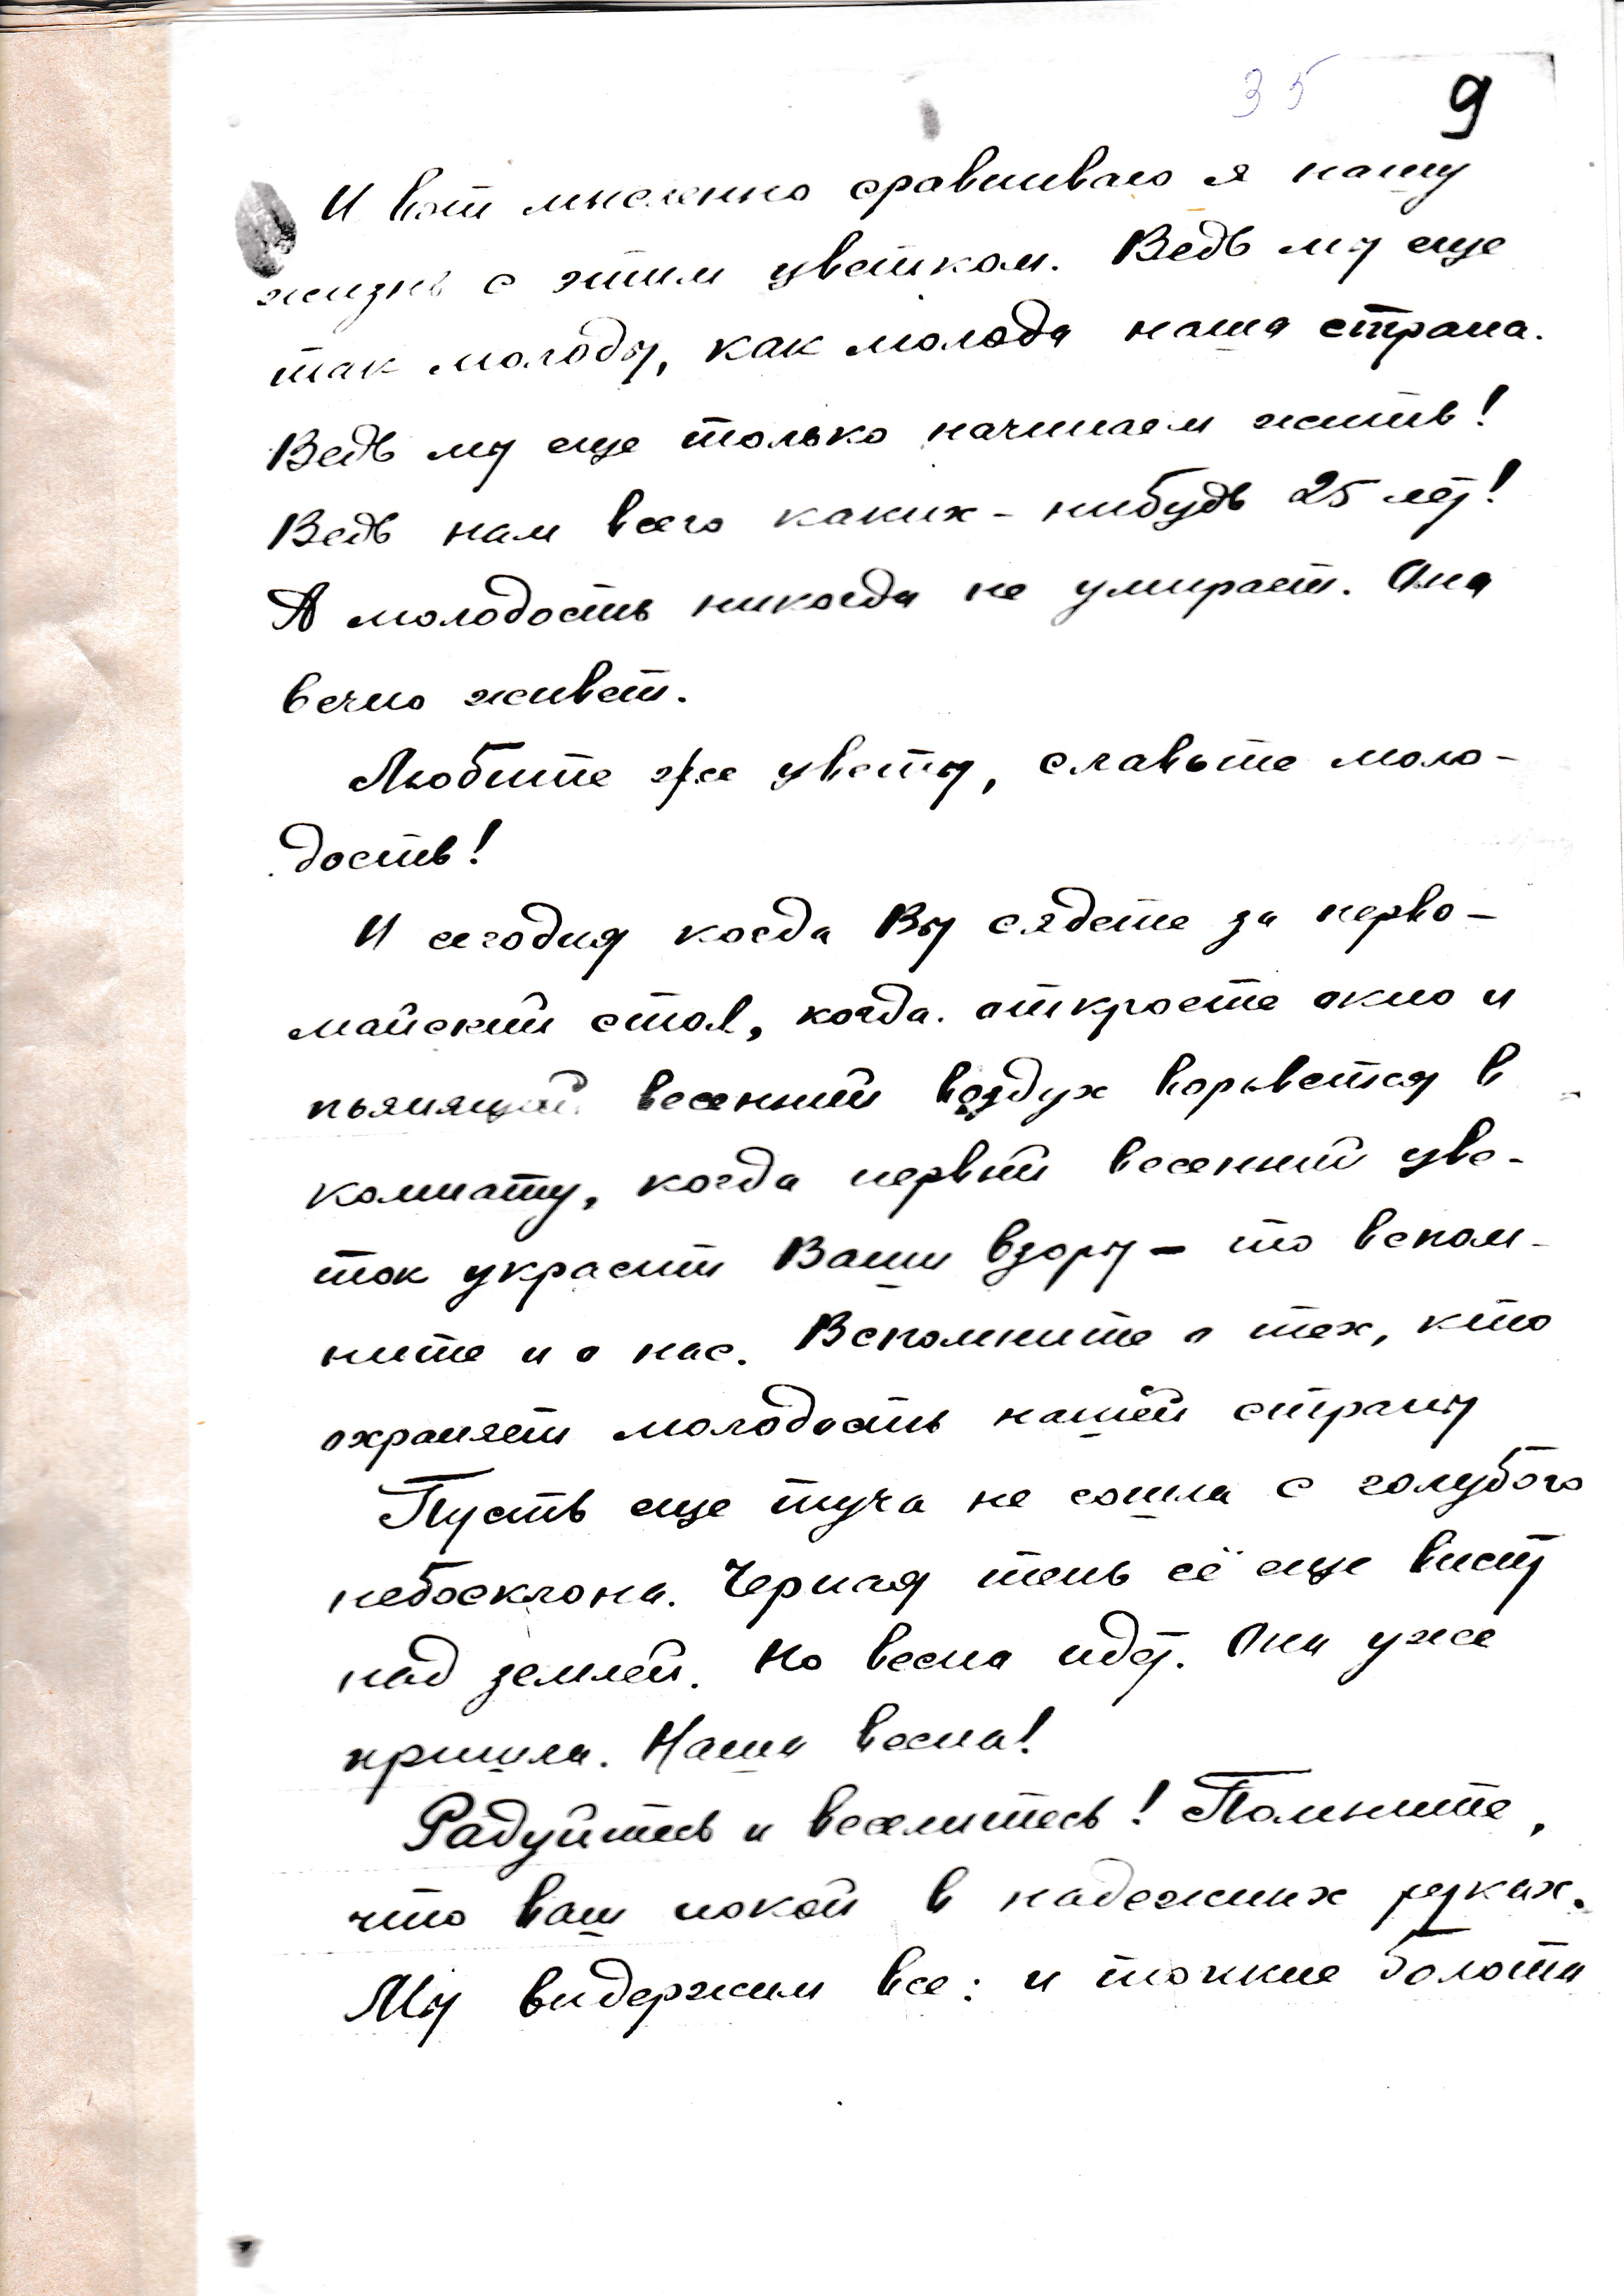 35 9
И вот мысленно сравниваю я нашу
жизнь с этим цветком. Ведь мы еще
так молоды, как молода наша страна.
Ведь мы еще только начинаем жить!
Ведь нам всего каких-нибудь 25 лет!
А молодость никогда не умирает. Она
вечно живет.
Любите же цветы, славьте моло-
дость!
И сегодня когда Вы сядете за перво-
майский стол, когда откроете окно и
пьянящий весенний воздух ворвется в
комнату, когда первый весенний цве-
ток украсит Ваши взоры – то вспом-
ните и о нас. Вспомните о тех, кто
охраняет молодость нашей страны
Пусть еще туча не сошла с голубого
небосклона. Черная тень её еще висит
над землей. Но весна идет. Она уже
пришла. Наша весна!
Радуйтесь и веселитесь! Помните,
что ваш покой в надежних руках.
Мы выдержим все: и топкие болота